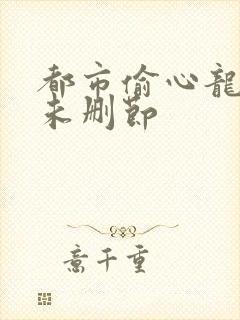 都市偷心龍
未删節
意千重